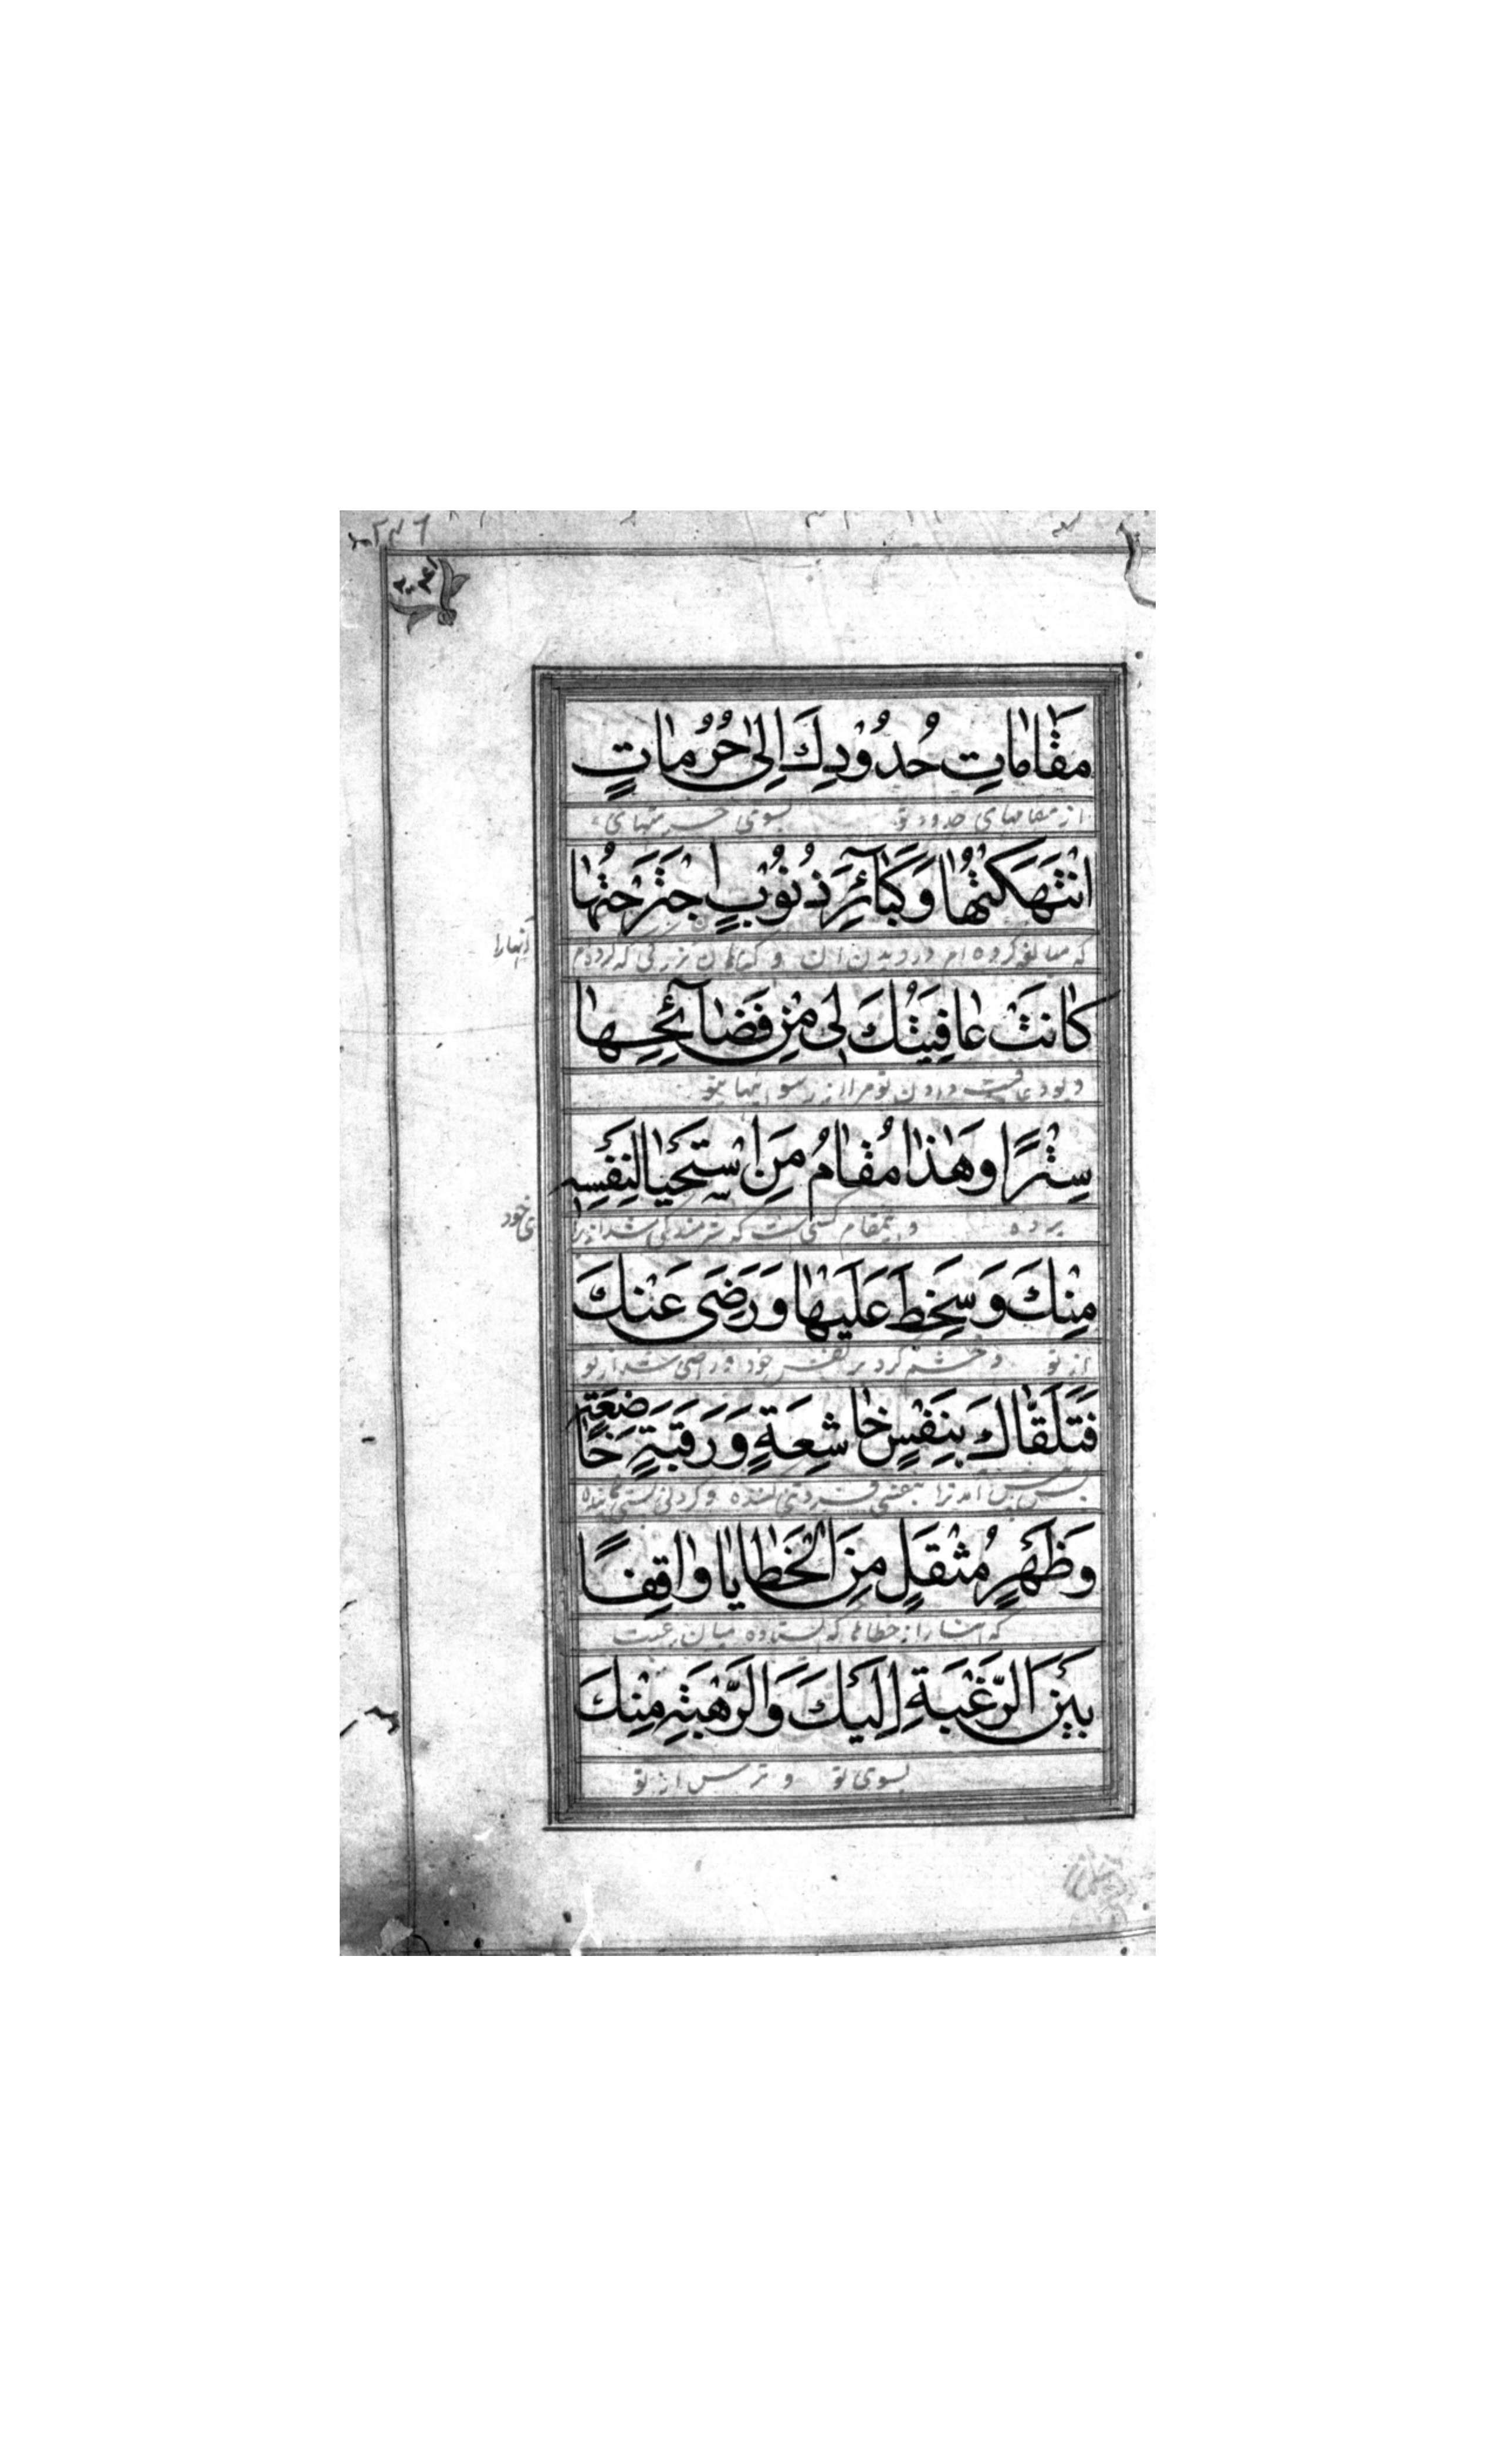 مَقَامَاتِ حُدُودِكَ إِلَى حُرُمَاتٍ
از مقامهای حدود تو بسوی حرمتهای
انْتَهَكْتُهَا وَكَبَائِرَ ذُنُوبٍ اجْتَرَحْتُهَا
که مبالغه کرده ام در دریدن ان و گناهان بزرگی که کرده ام آنها را
كَانَتْ عَافِيَتُكَ لِي مِنْ فَضَائِحِهَا
و بود عافیت دادن تو مرا از رسوائیهای
سِتْرًا وَهَذَا مُقَامُ مَنِ اسْتَحْيَا لِنَفْسِهِ
پرده و اینمقام کسی است که شرمندگی شد از برای خود
مِنْكَ وَسَخِطَ عَلَيْهَا وَرَضِيَ عَنْكَ
از تو و خشم کرد بر نفس خود و راضی شد از تو
فَتَلَقَّاكَ بِنَفْسٍ خَاشِعَةٍ وَرَقَبَةٍ خَاضِعَةٍ
پس پیش آمد ترا بنفسی فروتنی کننده و گردنی
وَظَهْرٍ مُثْقَلٍ مِنَ الْخَطَايَا وَاقِفًا
از خطاها که ایستاده میان رغبت
بَيْنَ الرَّغْبَةِ إِلَيْكَ وَالرَّهْبَةِ مِنْكَ
بسوی تو و ترس از تو